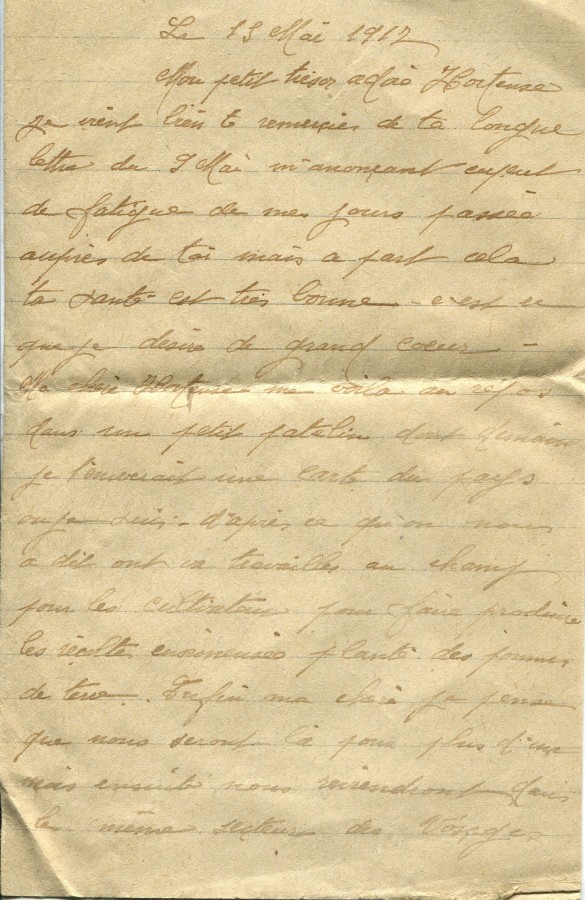 Le 13 Mai 1917
Mon petit trésor adoré Hortense
je vient bien te remercies de ta longue
lettre du 9 Mai m'anonçant
de fatigue de mes jours passée
auprès de toi mais a part cela
ta santé est très bonne - c'est ce
que je désire de grand coeur -
Ma chère Hortense me voila au repos
dans un petit patelin dont demain
je t'enverrait une carte du pays
ou je suis - d'après ce qu'on nous
a dit ont va travailles au champ
pour les cultivateur pour faire produire
les récoltes planté des pommes
de terre. Enfin ma chère je pense
que nous seront là pour plus d'un
mois ensuite nous reviendront dans
le même secteur des Vosges